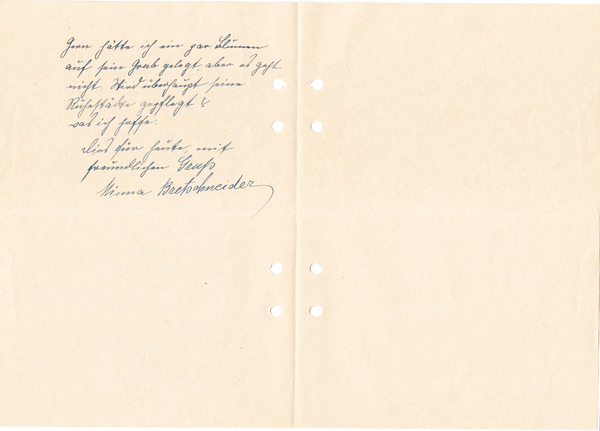 Gern hätte ich ein par Blumen
auf sein Grab gelegt, aber es geht
nicht. Wird überhaupt seine
Ruhestädte gepflegt?
was ich hoffe.
Dies für heute, mit
freundlichen Gruß
Minna Bretschneider